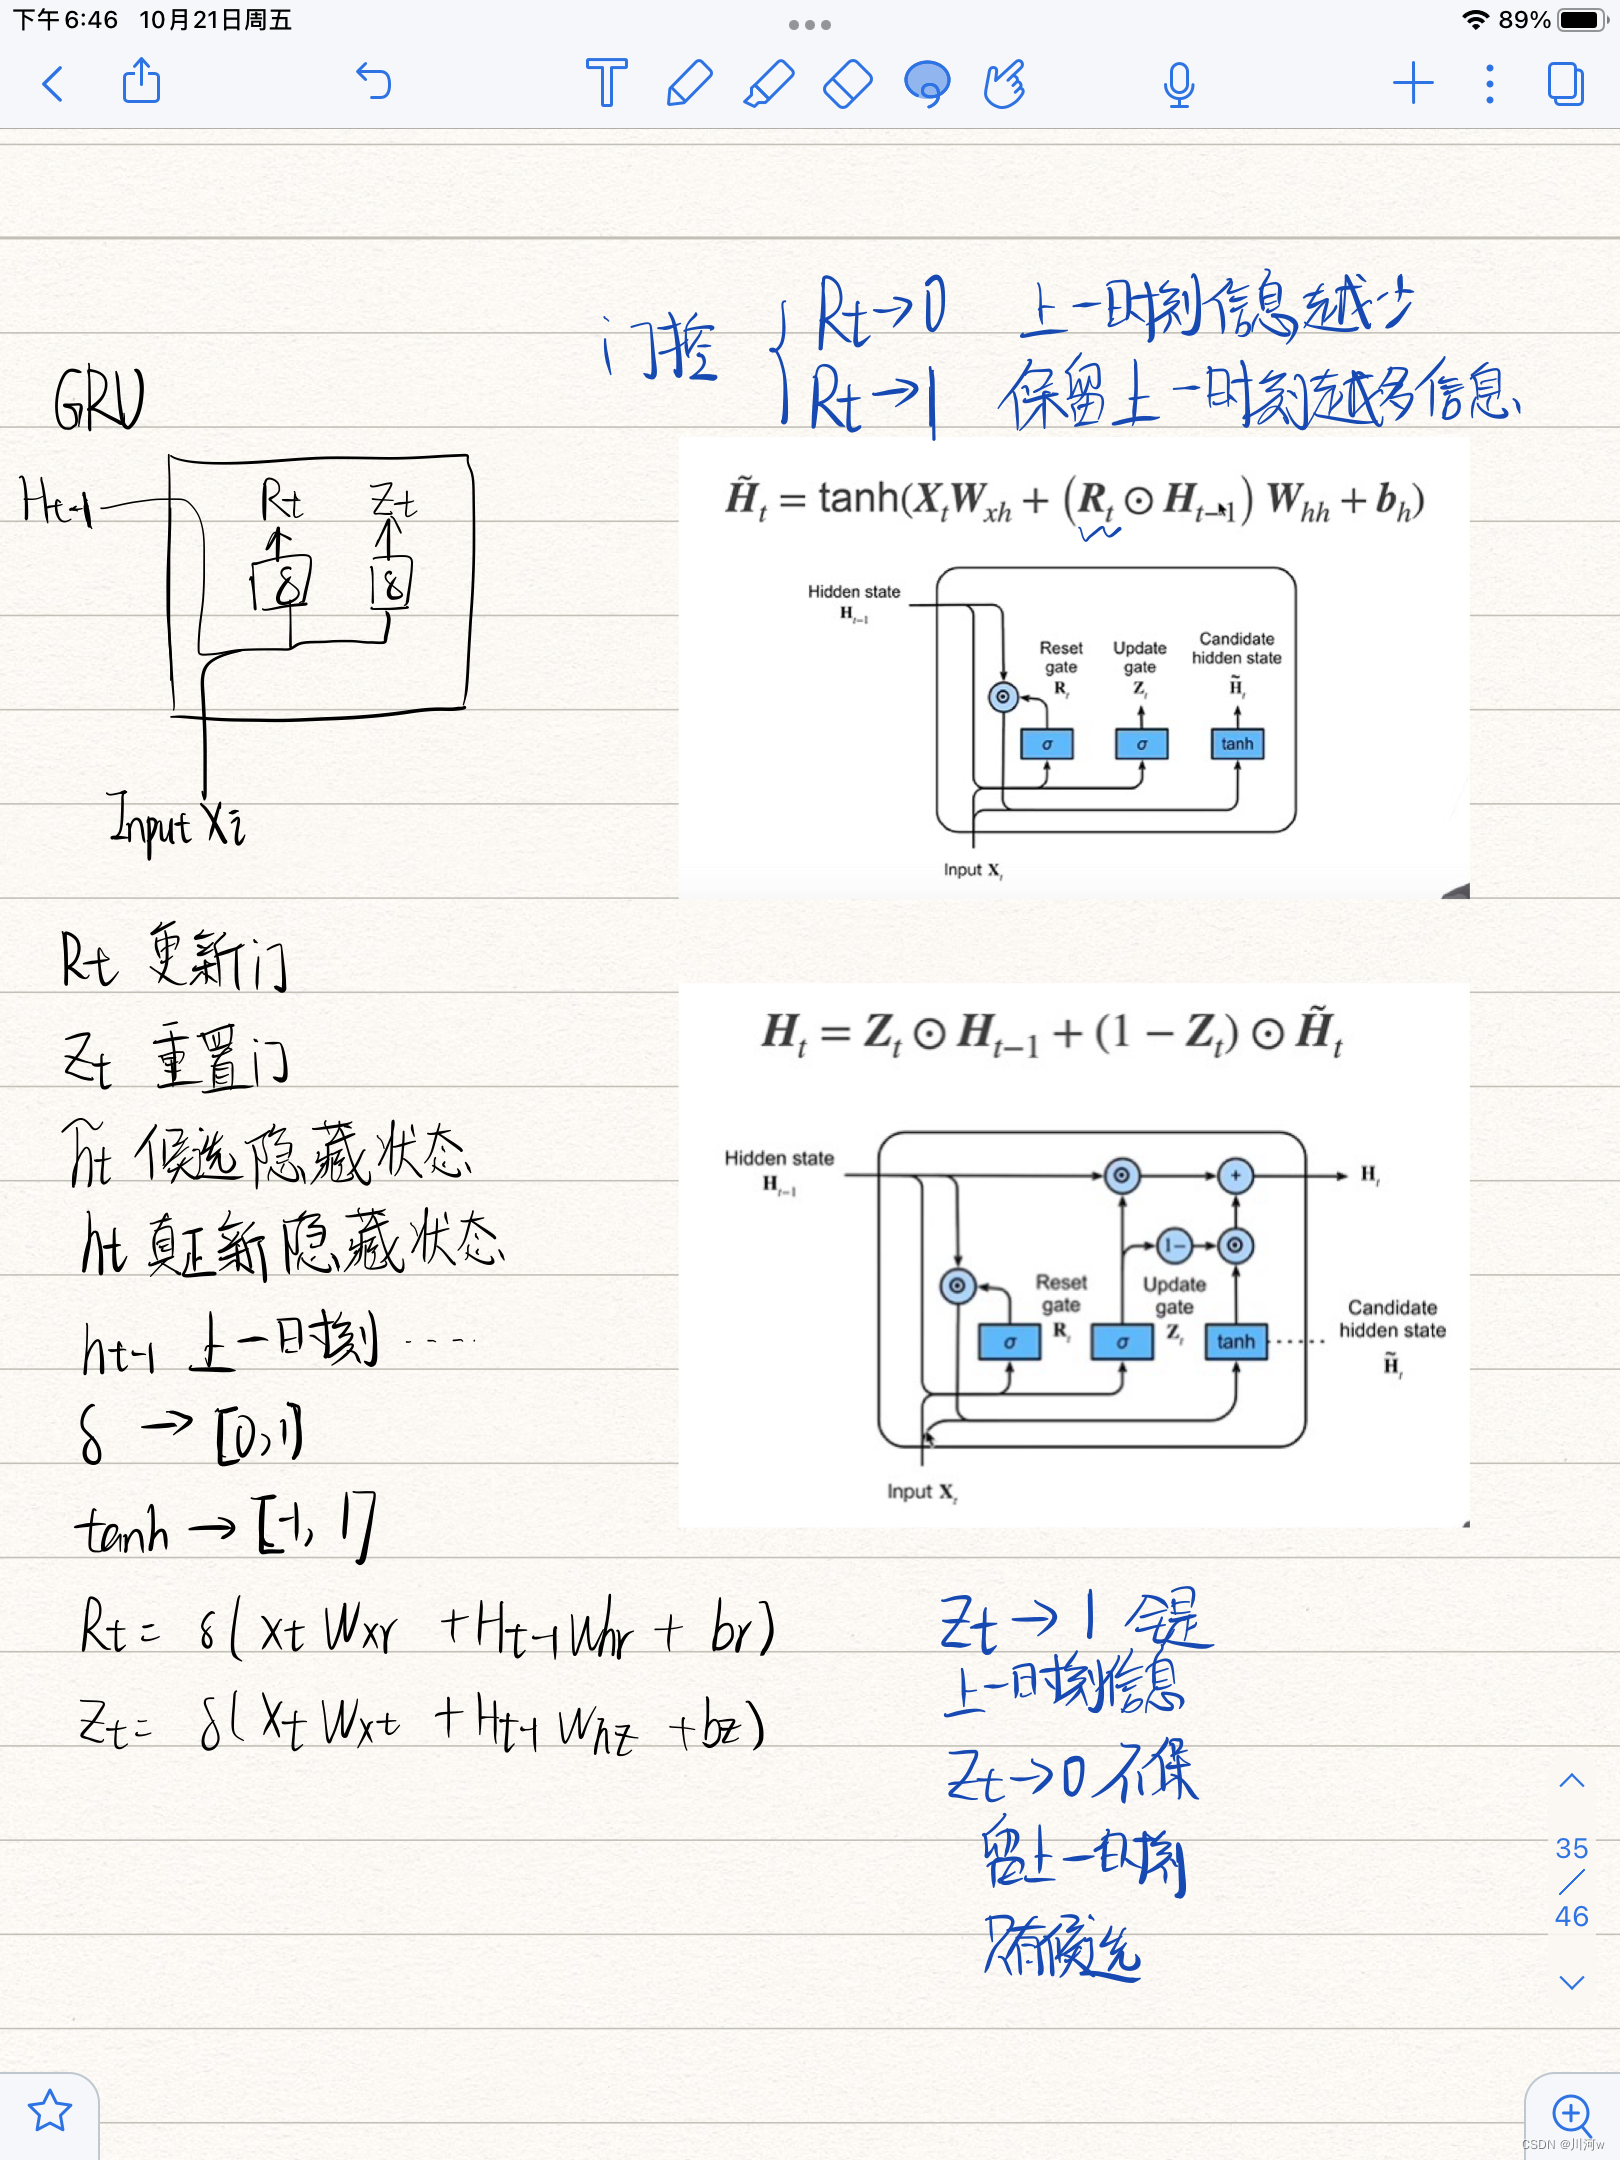 下午6:46 10月21日周五
89%
门控 { Rt→0 上一时刻信息越少
Rt→1 保留上一时刻越多信息
GRU
Ht-1
Rt Zt
δ δ
Input Xi
H̃t = tanh(XtWxh + (Rt ⊙ Ht−1) Whh + bh)
Hidden state
Ht−1
Reset gate Rt
Update gate Zt
Candidate hidden state H̃t
σ σ tanh
Input Xt
Rt 更新门
Zt 重置门
h̃t 候选隐藏状态
ht 真正新隐藏状态
ht-1 上一时刻 ····
δ → [0,1]
tanh → [-1, 1]
Ht = Zt ⊙ Ht−1 + (1 − Zt) ⊙ H̃t
Hidden state
Ht−1
+
Ht
1−
Reset gate Rt
Update gate Zt
σ σ tanh
Candidate hidden state H̃t
Input Xt
Rt = δ( xt Wxr + Ht-1 Whr + br)
Zt = δ( Xt Wxt + Ht-1 Whz + bz)
Zt → 1 会是
上一时刻信息
Zt→0 不保
留上一时刻
只有候选
35
/
46
CSDN @川河w